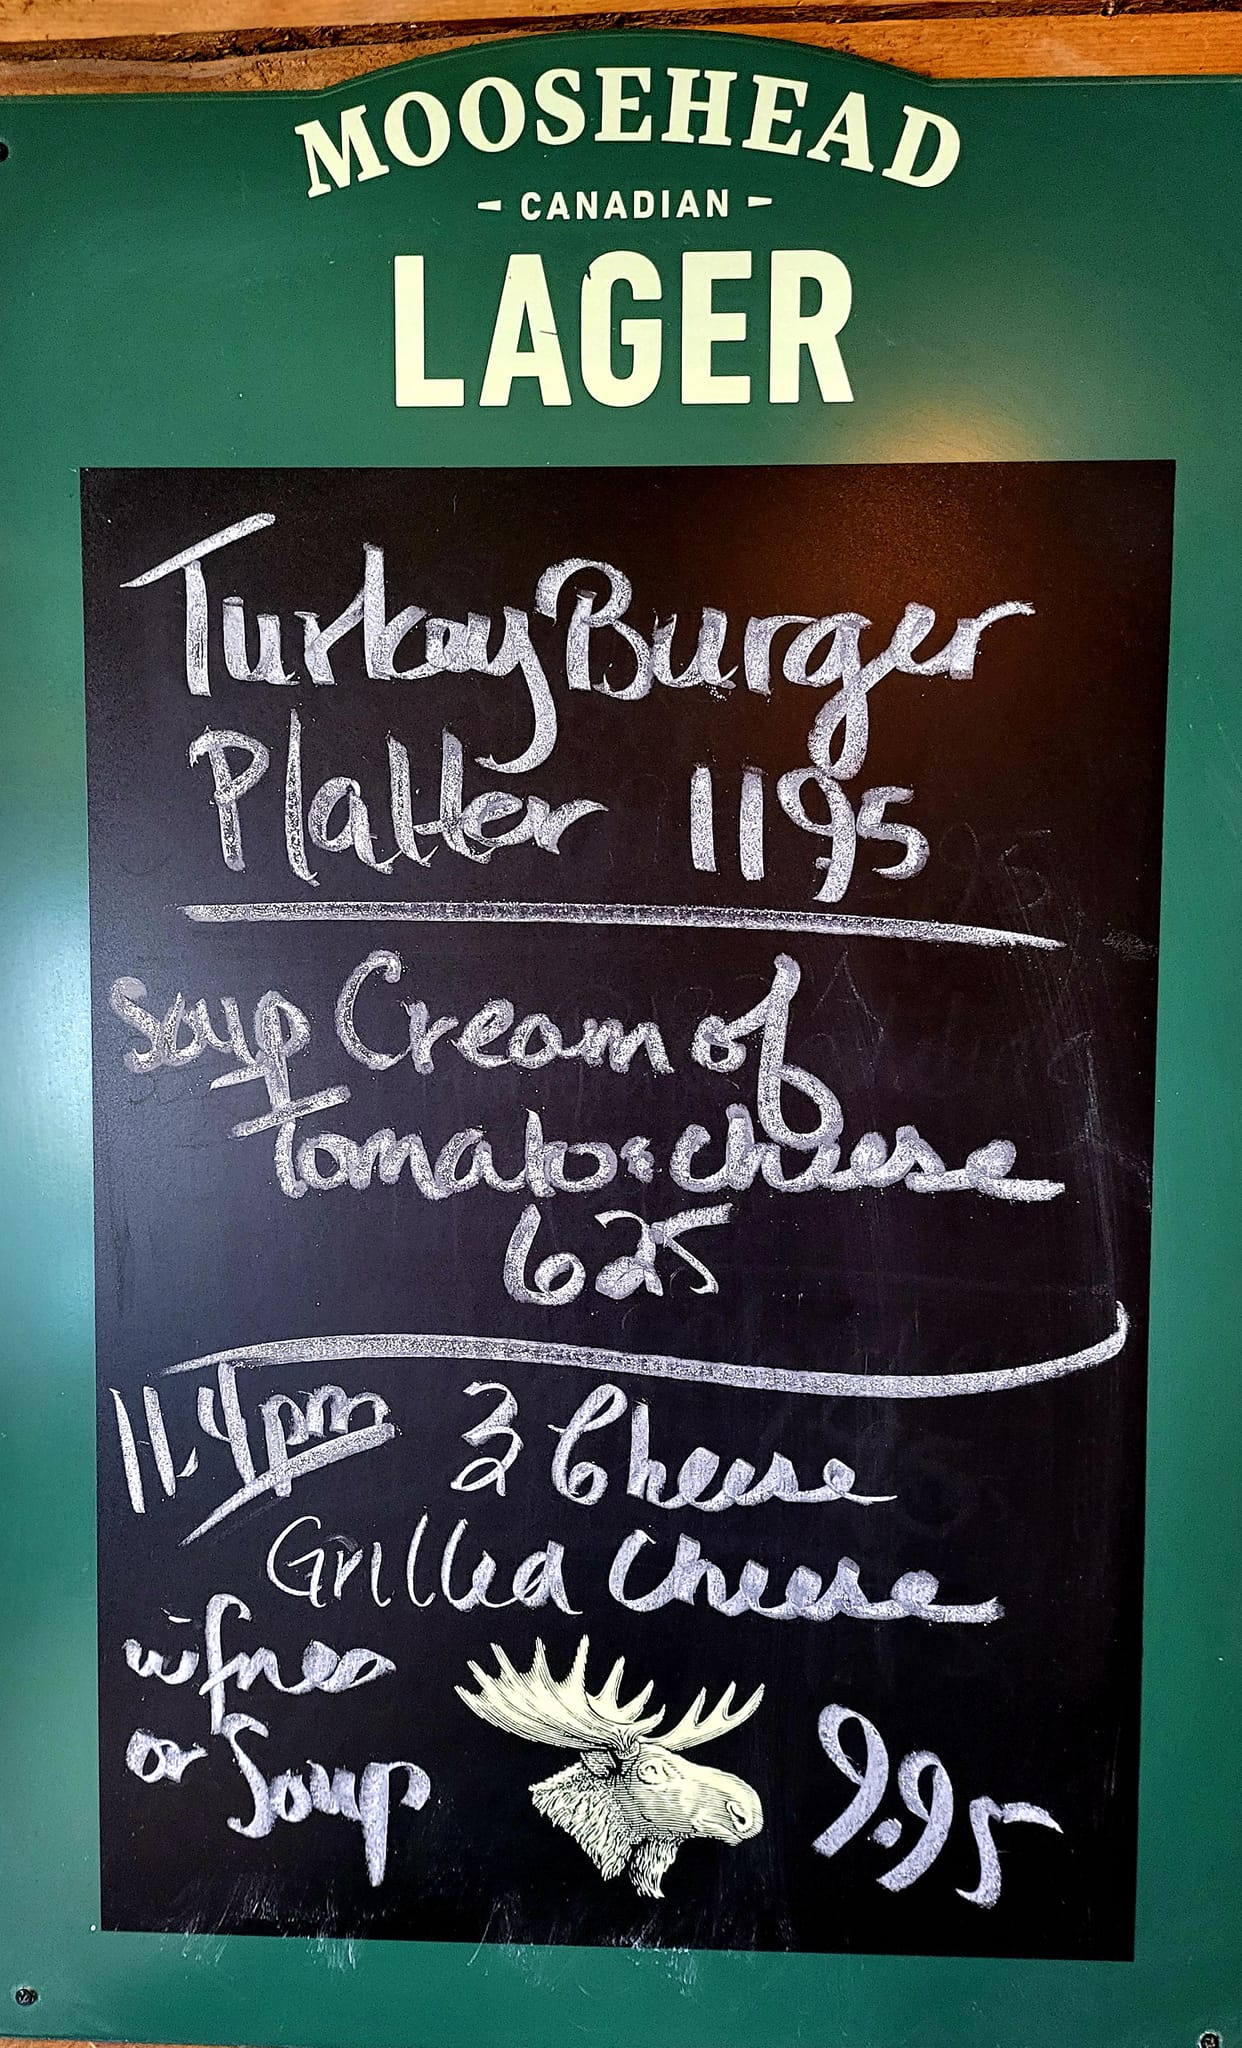 MOOSEHEAD
- CANADIAN -
LAGER
Turkey Burger
Platter 1195
Soup Cream of
Tomato & cheese
625
11-4pm 3 Cheese
Grilled Cheese
w/ fries
or Soup
9.95